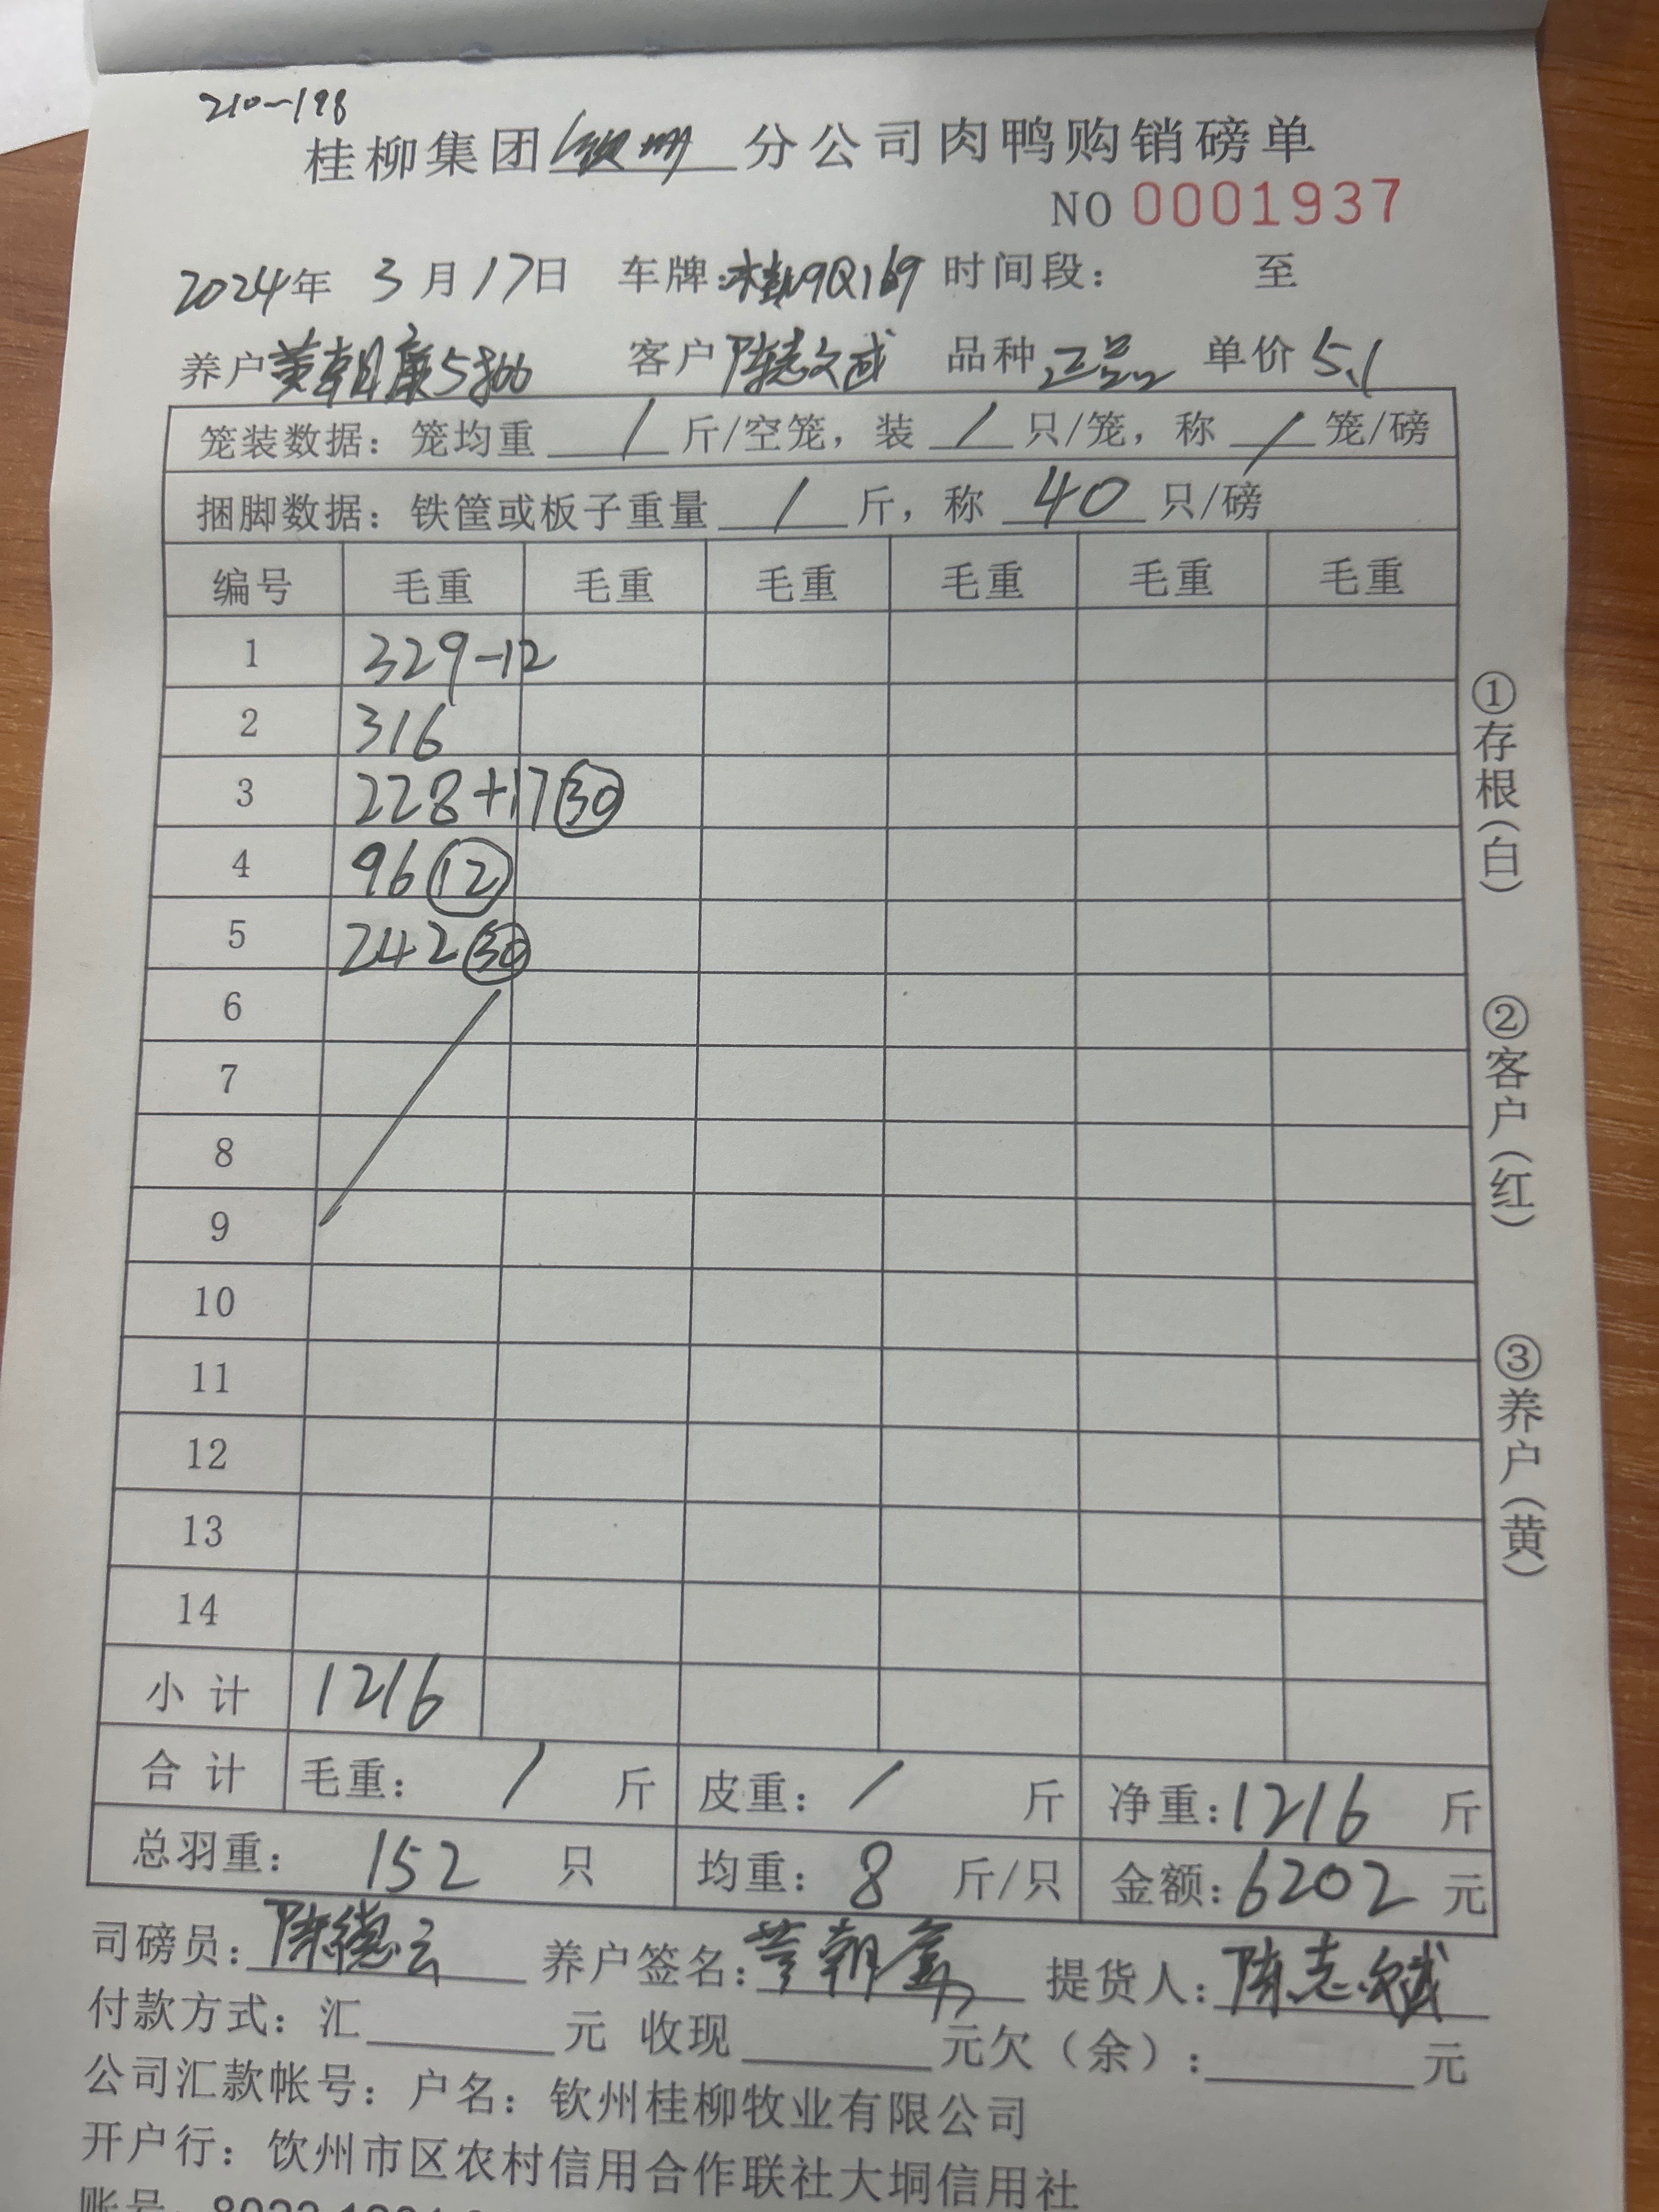 210-198
桂柳集团钦州分公司肉鸭购销磅单
NO 0001937
2024年 3月17日 车牌:桂N9Q169 时间段: 至
养户黄朝 5800 客户陈志文武 品种正品 单价5.1
笼装数据: 笼均重 / 斤/空笼, 装 / 只/笼, 称 / 笼/磅
捆脚数据: 铁筐或板子重量 / 斤, 称 40 只/磅
编号 毛重 毛重 毛重 毛重 毛重 毛重
1 329-12
2 316
3 228+17 30
4 96 12
5 242 30
6
7
8
9
10
11
12
13
14
小计 1216
合计 毛重: / 斤 皮重: / 斤 净重:1216 斤
总羽重: 152 只 均重: 8 斤/只 金额:6202 元
司磅员:陈德云 养户签名:黄朝 提货人:陈志
付款方式: 汇 元 收现 元欠(余): 元
公司汇款帐号: 户名: 钦州桂柳牧业有限公司
开户行: 饮州市区农村信用合作联社大垌信用社
账号:
①存根(白)
②客户(红)
③养户(黄)